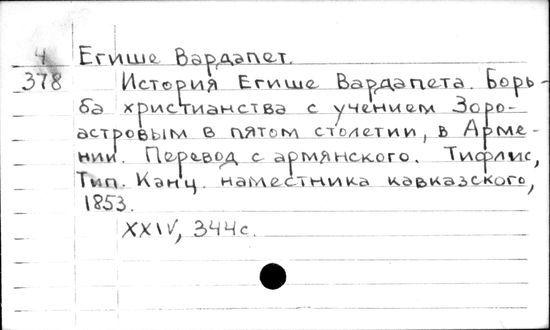 4 Егише Вардапет.
378 История Егише Вардапета. Борь-
ба христианства с учением Зоро-
астровым в пятом столетии, в Арме-
нии. Перевод с армянского. Тифлис,
Тип. Канц. наместника кавказского,
1853.
XXIV, 344с.